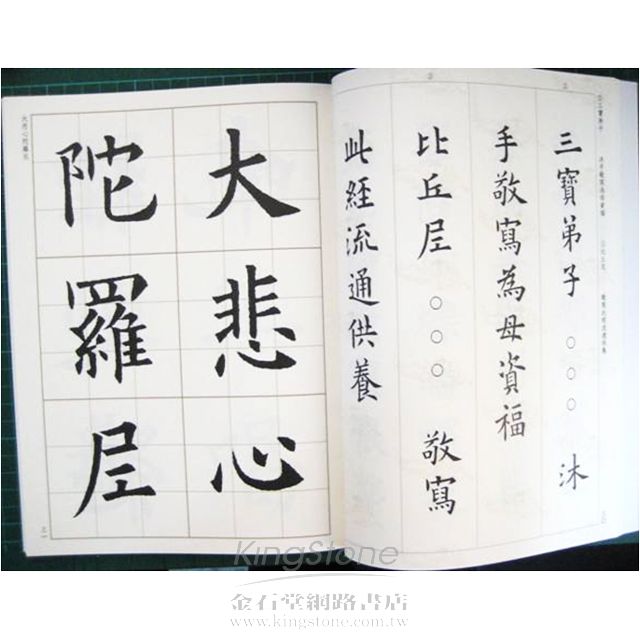 三寶弟子 ○○○ 沐
手敬寫為母資福
比丘尼 ○○○ 敬寫
此經流通供養
大悲心
陀羅尼
大悲心陀羅尼
KingStone
金石堂網路書店
www.kingstone.com.tw